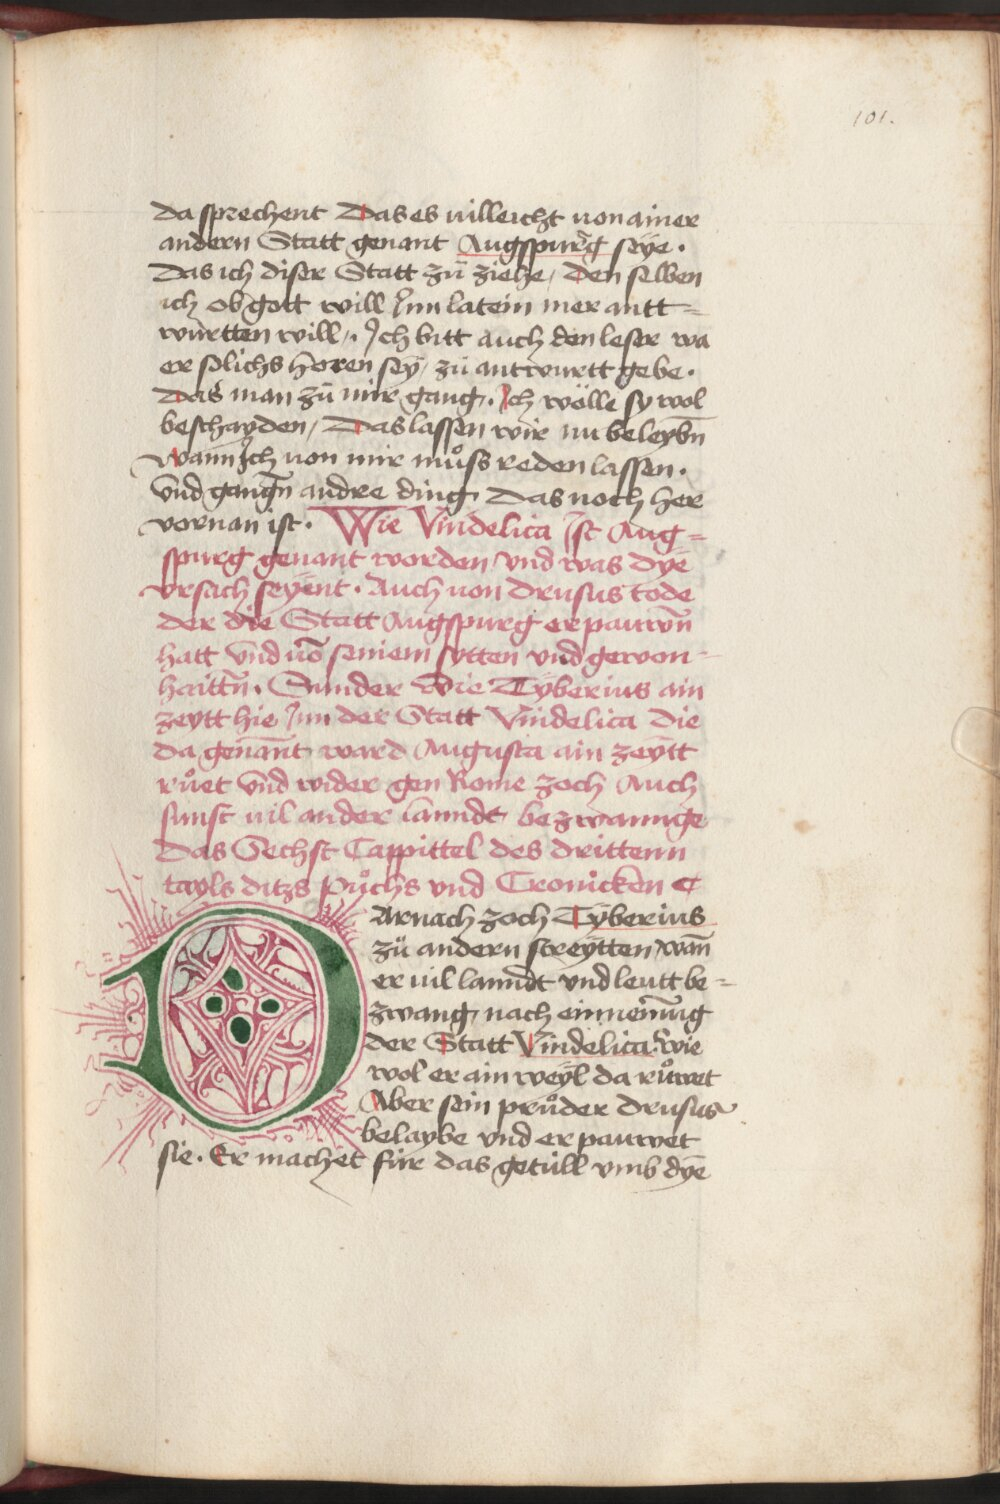 101.
da sprechent Das es villeicht von ainer
andern Statt genant Augspurg seÿe.
Das ich diser Statt zů ziehe / Den selben
ich ob gott will Jnn latein mer antt=
wurtten will /. Jch bitt auch den leser wa
er solichs horen seÿ / zů antwurtt gebe.
Das man zů mir gang. Jch wölle sy wol
beschayden / Das lassen wir nu beleybn̄
wann Jch von mir můss reden lassen.
Vnd gangn̄ andre ding. Das noch her
vornan ist. Wie Vindelica Jst Aug=
spurg genant worden / vnd was dÿe
vrsach seÿent. Auch von drusus tode
der die Statt Augspurg erpauwn̄
hatt Vnd vō seniem sytten vnd gewon-
haittn̄. Sunder Wie Tÿberius ain
zeytt hie Jnn der Statt Vindelica die
da genannt ward Augusta ain zeÿtt
růet Vnd wider gen Rome zoch Auch
sunst vil ander lanndt bezwannge
Das Sechst Cappittel des drittenn
tayls ditzs Půchs vnd Cronicken
DArnach zoch Tÿberius
zů andern streÿtten / wan̄
er vil lanndt vnd leutt be=
zwang / nach einnemūng
der Statt Vindelica. wie
wol er ain weÿl da růwet
Aber sein průder drusus
belaybe vnd erpauwet
sie. Er machet für das getüll vmb dÿe